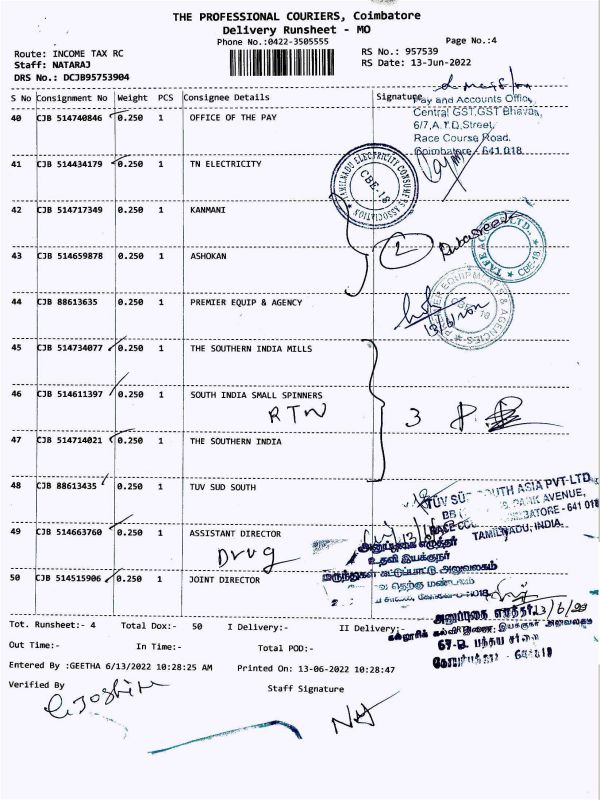 THE PROFESSIONAL COURIERS, Coimbatore
Delivery Runsheet - MO
Phone No.:0422-3505555
Page No.:4
Route: INCOME TAX RC
RS No.: 957539
Staff: NATARAJ
RS Date: 13-Jun-2022
DRS No.: DCJB95753904
S No Consignment No Weight PCS Consignee Details Signature
Pay and Accounts Office,
Central GST,GST Bhavan,
6/7,A.T.D.Street,
Race Course Road,
Coimbatore - 641 018
40 CJB 514740846 0.250 1 OFFICE OF THE PAY
41 CJB 514434179 0.250 1 TN ELECTRICITY
TAMILNADU ELECTRICITY CONSUMERS ASSOCIATION
CBE-18
42 CJB 514717349 0.250 1 KANMANI
2
CBE-18
43 CJB 514659878 0.250 1 ASHOKAN
44 CJB 88613635 0.250 1 PREMIER EQUIP & AGENCY
EQUIPMENTS & AGENCIES
45 CJB 514734077 0.250 1 THE SOUTHERN INDIA MILLS
46 CJB 514611397 0.250 1 SOUTH INDIA SMALL SPINNERS
RTN
3
47 CJB 514714021 0.250 1 THE SOUTHERN INDIA
48 CJB 88613435 0.250 1 TUV SUD SOUTH
TÜV SÜD SOUTH ASIA PVT-LTD
PARK AVENUE,
COIMBATORE - 641 018
TAMILNADU, INDIA.
49 CJB 514663760 0.250 1 ASSISTANT DIRECTOR
Drug
அனுப்புகை எழுத்தர்
உதவி இயக்குநர்
மருந்துகள் கட்டுப்பாட்டு அலுவலகம்
50 CJB 514515906 0.250 1 JOINT DIRECTOR
அனுப்புகை எழுத்தர்
13/6/22
Tot. Runsheet:- 4 Total Dox:- 50 I Delivery:- II Delivery:-
Out Time:- In Time:- Total POD:-
Entered By :GEETHA 6/13/2022 10:28:25 AM Printed On: 13-06-2022 10:28:47
Verified By
Staff Signature